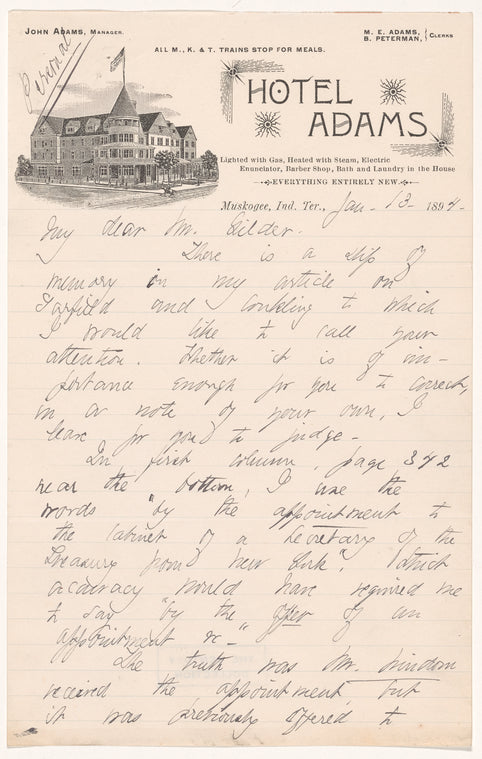 John Adams, Manager.
M. E. ADAMS,
B. PETERMAN, Clerks
All M., K. & T. TRAINS STOP FOR MEALS.
Personal
HOTEL
ADAMS
Lighted with Gas, Heated with Steam, Electric
Enunciator, Barber Shop, Bath and Laundry in the House
EVERYTHING ENTIRELY NEW.
Muskogee, Ind. Ter., Jan - 13 - 1894 -
My dear Mr. Gilder.
There is a slip of
memory in my article on
Garfield and Conkling to which
I would like to call your
attention. Whether it is of im-
portance enough for you to correct,
in a note of your own, I
leave for you to judge -
In first column, page 342
near the bottom, I use the
words "by the appointment to
the cabinet of a Secretary of the
Treasury from New York". Strict
accuracy would have required me
to say "by the offer of an
appointment &c - "
The truth was Mr. Windom
received the appointment but
it was previously offered to